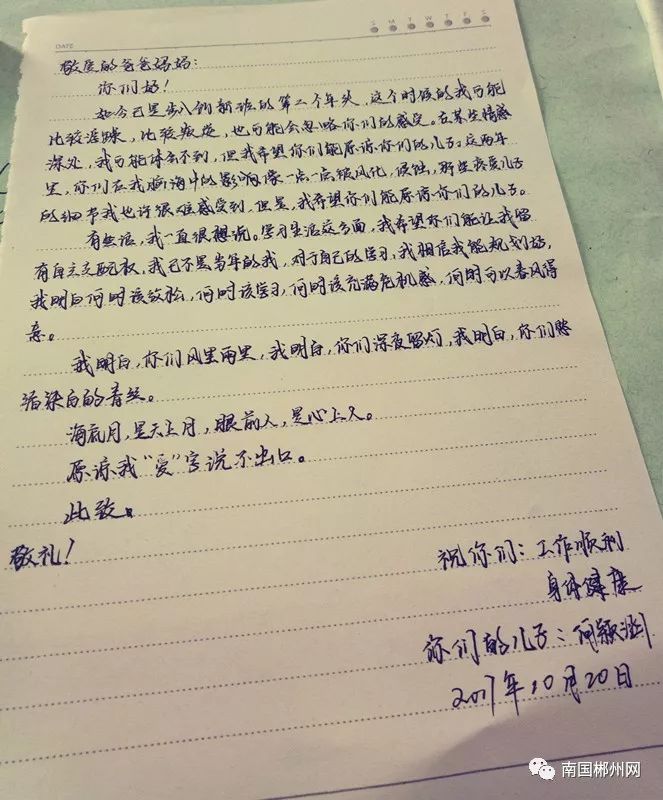 S M T W T F S
DATE
敬爱的爸爸妈妈:
你们好!
如今已是步入创新班的第二个年头,这个时候的我可能
比较浮躁,比较叛逆,也可能会忽略你们的感受。在某些情感
深处,我可能体会不到,但我希望你们能原谅你们的儿子。这两年
里,你们在我脑海中的影响像一点一点被风化,侵蚀,那些疼爱儿子
的细节我也许很难感受到,但是,我希望你们能原谅你们的儿子。
有些话,我一直很想说。学习生活这方面,我希望你们能让我留
有自主支配权,我已不是当年的我,对于自己的学习,我相信我能规划好,
我明白何时该放松,何时该学习,何时该充满危机感,何时可以春风得
意。
我明白,你们风里雨里,我明白,你们深夜留灯,我明白,你们
渐染白的青丝。
海底月,是天上月,眼前人,是心上人。
原谅我“爱”字说不出口。
此致。
敬礼!
祝你们:工作顺利
身体健康
你们的儿子:何颖
2017年10月20日
南国郴州网